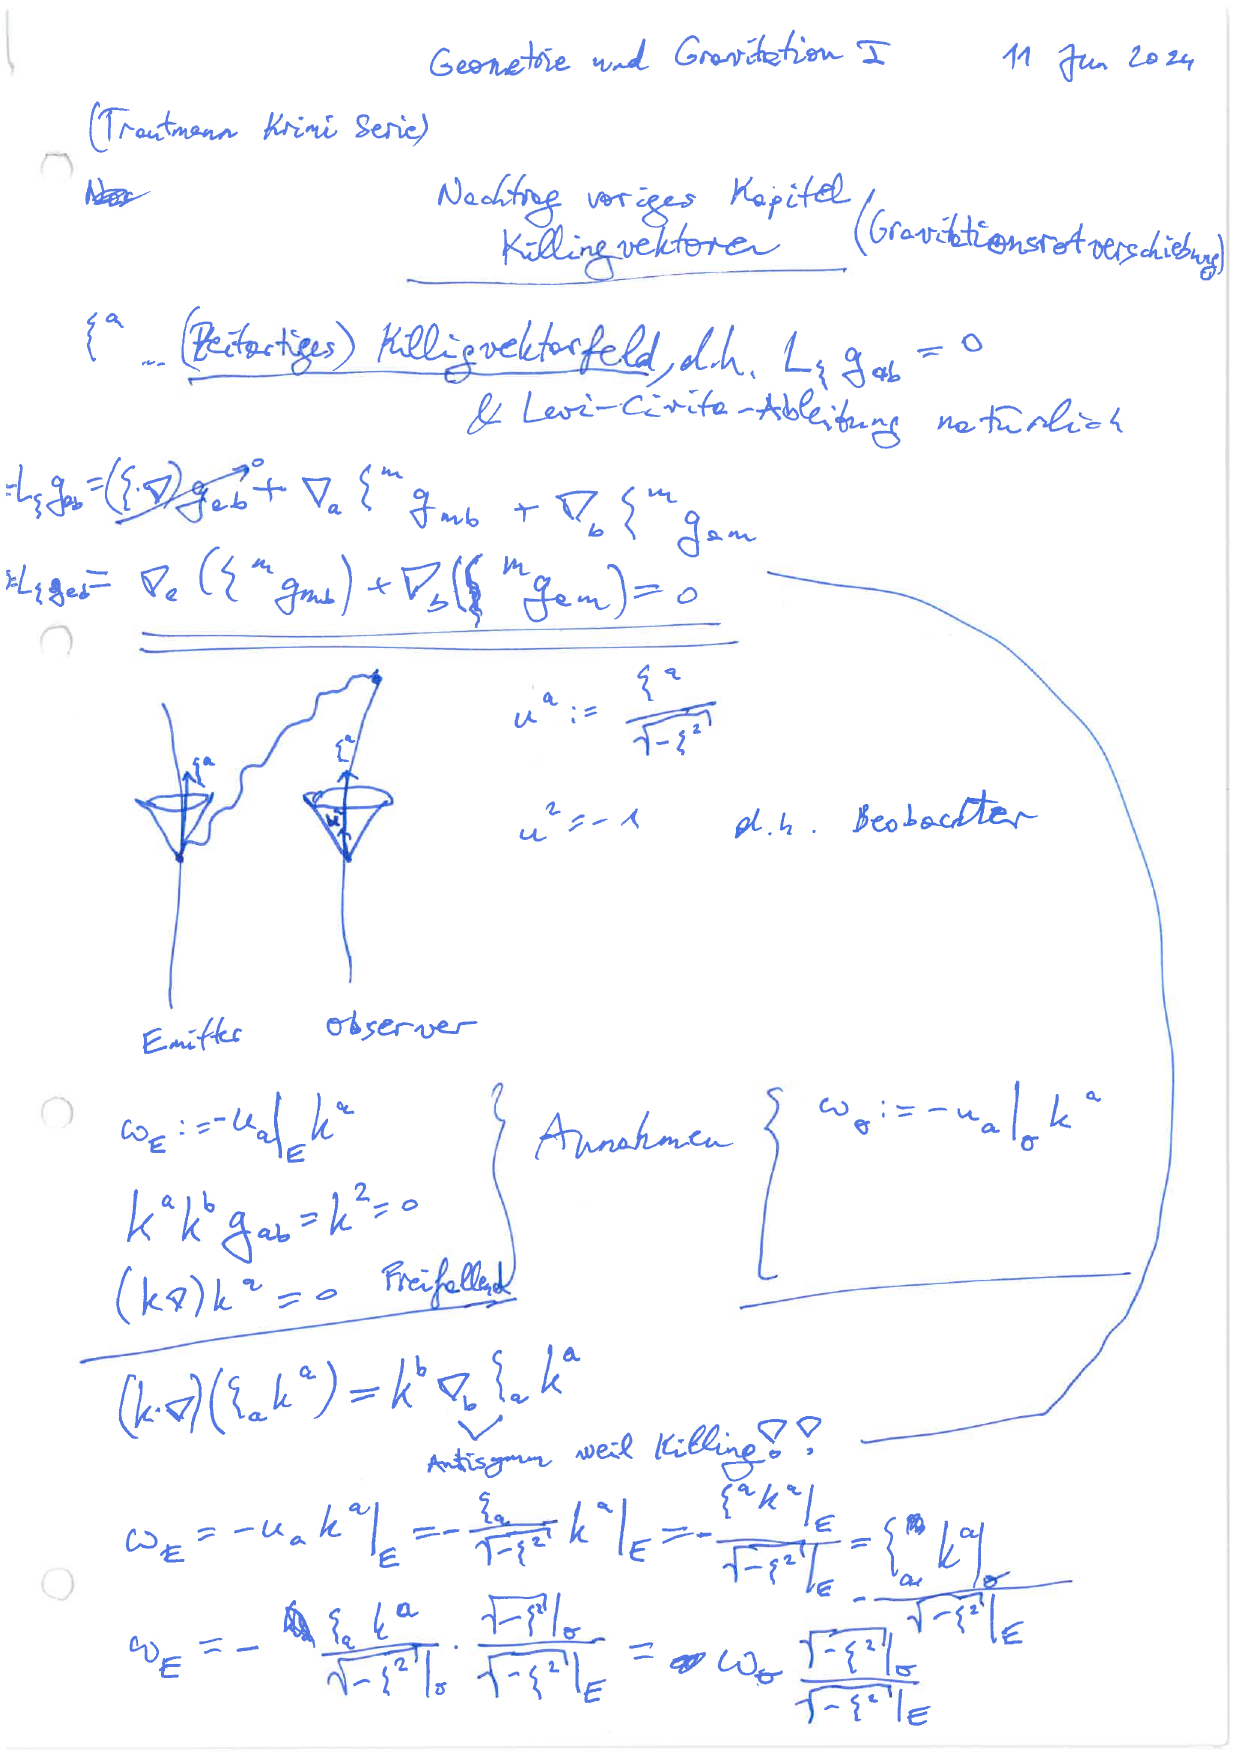 Geometrie und Gravitation I 11 Jun 2024
(Trautmann Krimi Serie)
Nachtrag voriges Kapitel
Killingvektoren (Gravitationsrotverschiebung)
ξ^a ... (Zeitartiges) Killigvektorfeld, d.h. L_ξ g_ab = 0
& Levi-Civita-Ableitung natürlich
=L_ξ g_ab = (ξ·∇) g_ab →0 + ∇_a ξ^m g_mb + ∇_b ξ^m g_am
=L_ξ g_ab = ∇_a (ξ^m g_mb) + ∇_b (ξ^m g_am) = 0
u^a := ξ^a / √(-ξ²)
ξ^a ξ^a
u² = -1 d.h. Beobachter
u^a
Emitter Observer
ω_E := -u_a|_E k^a } Annahmen { ω_σ := -u_a|_σ k^a
k^a k^b g_ab = k² = 0
(k∇)k^a = 0 Freifallend
(k·∇)(ξ_a k^a) = k^b ∇_b ξ_a k^a
Antisymm weil Killing!!
ω_E = -u_a k^a|_E = - ξ_a / √(-ξ²) k^a|_E = - ξ^a k^a|_E / √(-ξ²)|_E = - ξ_a k^a|_σ / √(-ξ²)|_E
ω_E = - ξ_a k^a / √(-ξ²)|_σ · √(-ξ²)|_σ / √(-ξ²)|_E = ω_σ √(-ξ²)|_σ / √(-ξ²)|_E